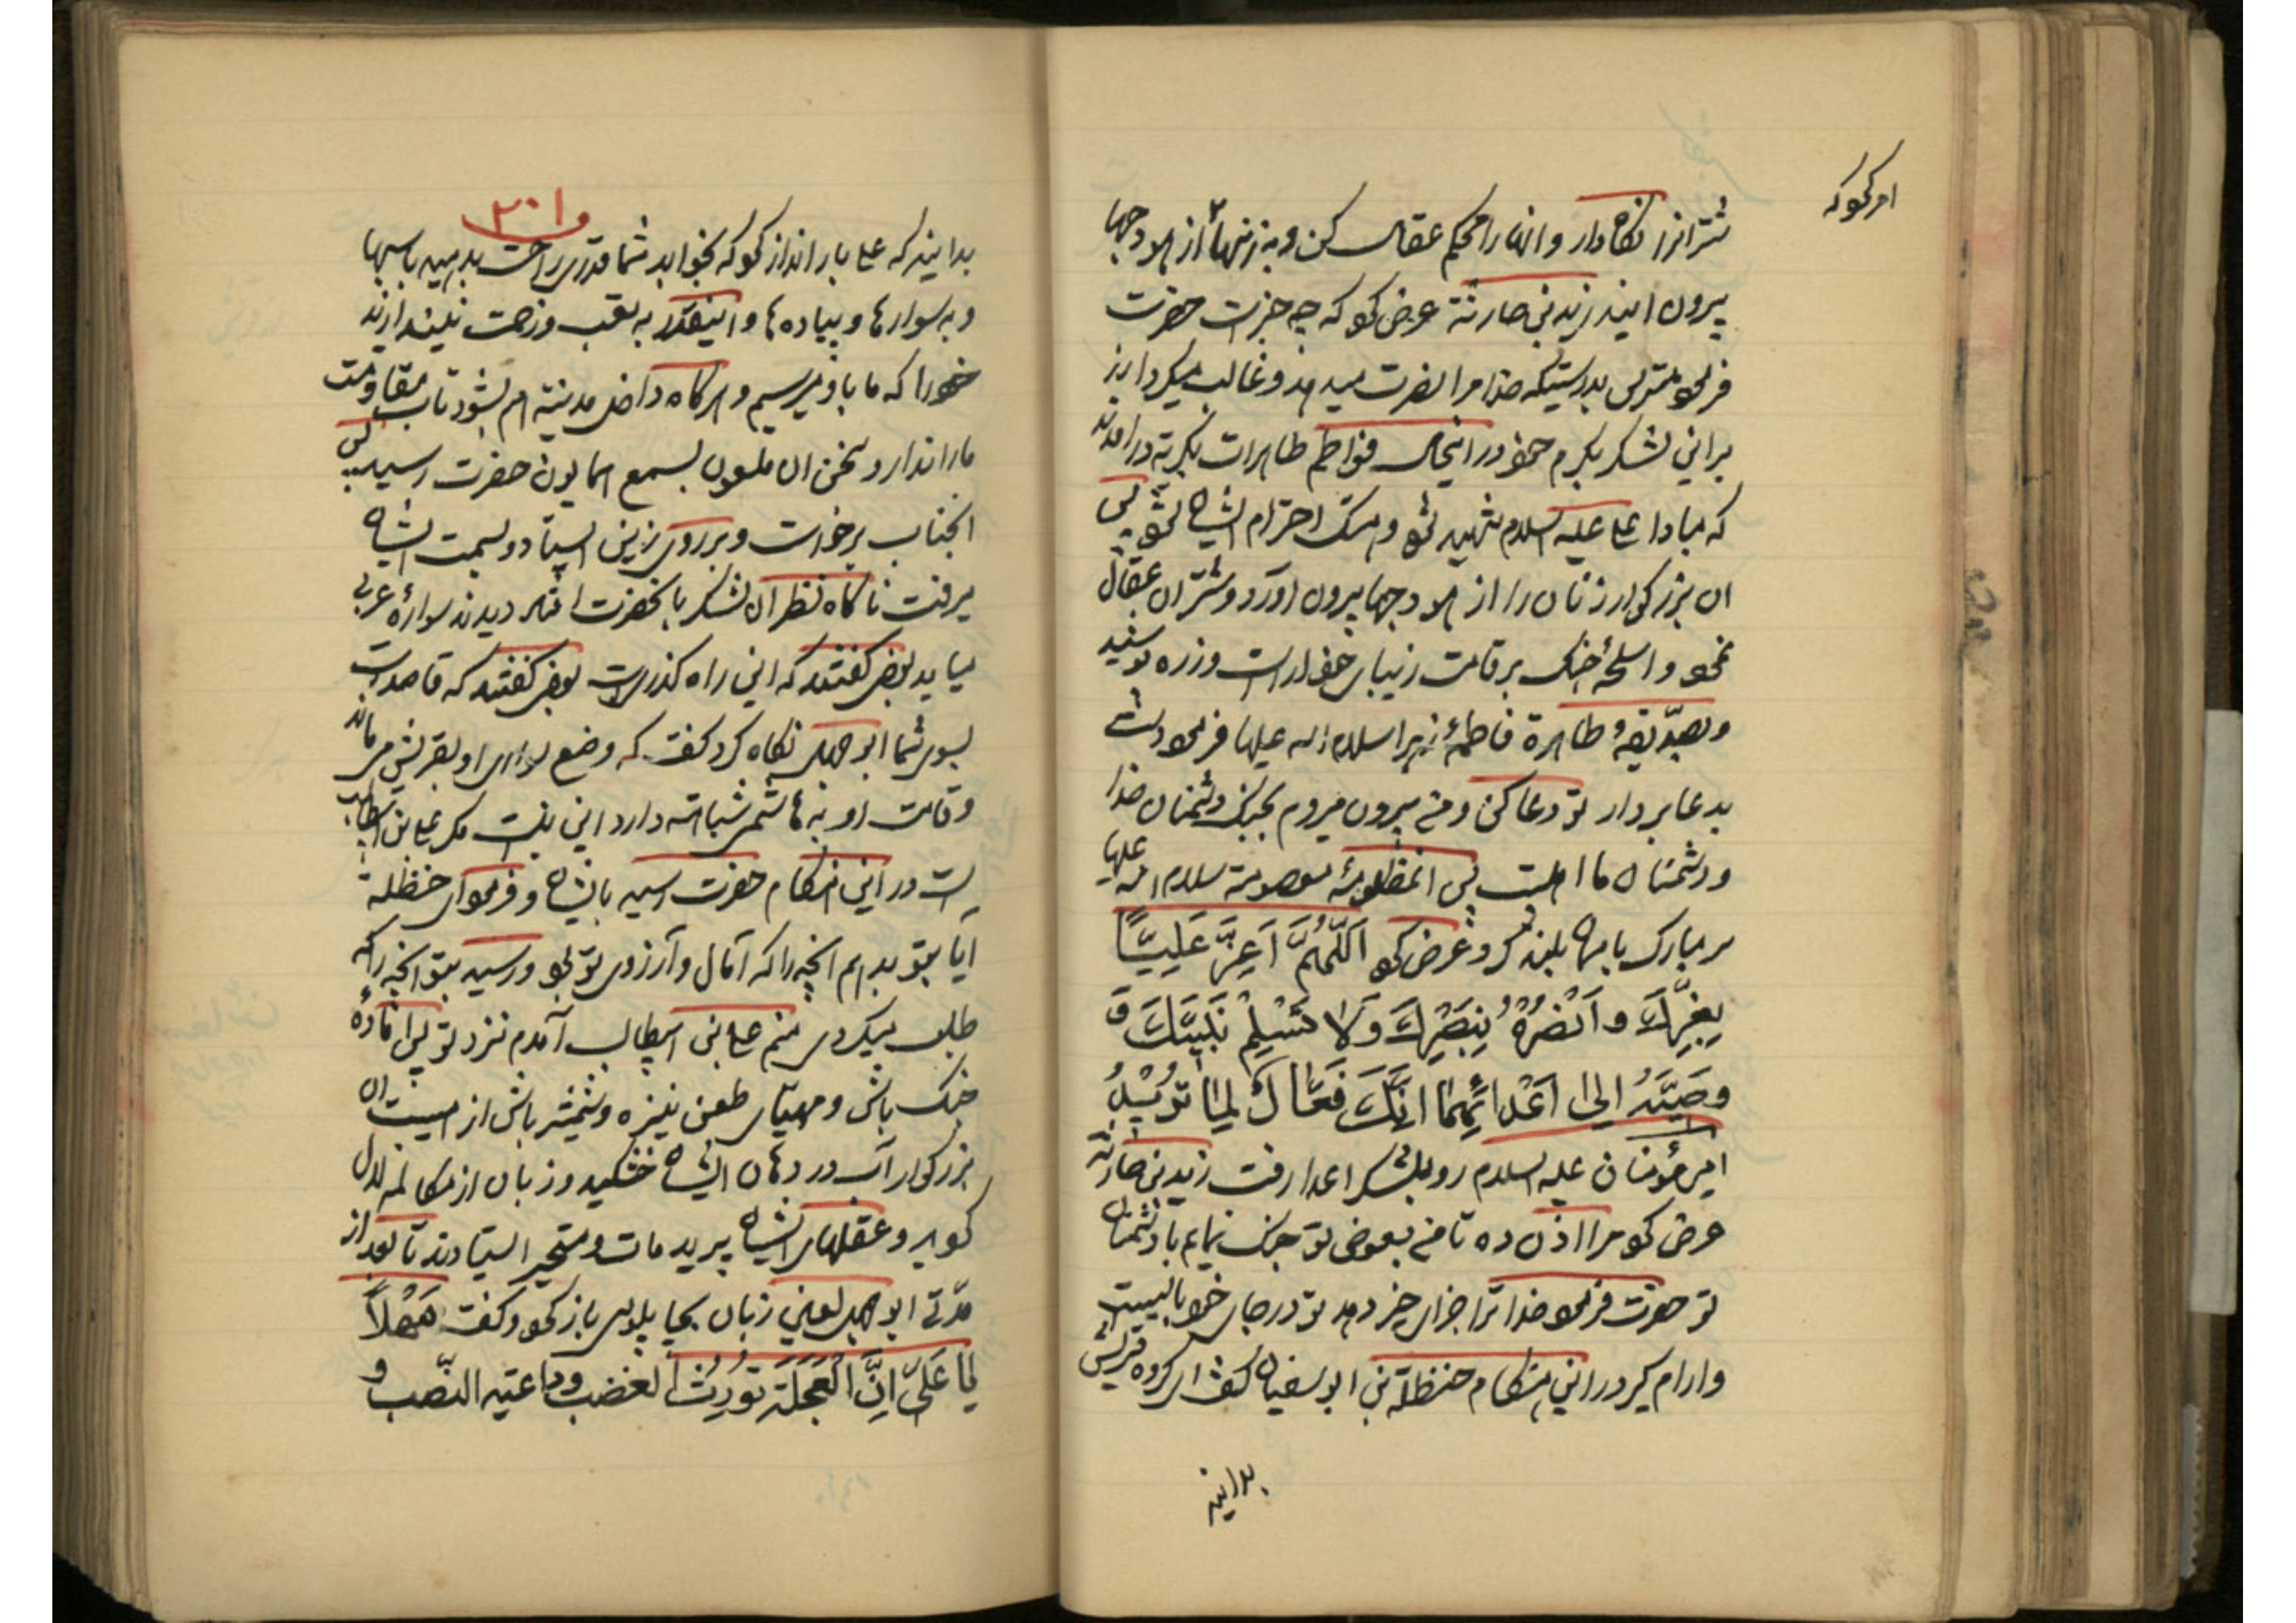 امر نمود که
شترانرا نگاه دار و انها را محکم عقال کن و به زنها از هودجها
بیرون ایند زیدبن حارثة عرض نمود که چه خبر است حضرت
فرمود مترس بدرستیکه خدا مرا نصرت میدهد و غالب میگرداند
براین لشکر بکرم خود دراینحال فواطم طاهرات بگریه درامدند
که مبادا علی علیه السلام شهید شود و هتک احترام ایشان شود پس
ان بزرگوار زنان را از هودجها بیرون اورد و شتران عقال
نمود و اسلحهٔ جنک بر قامت زیبای خود اراست و زره پوشید
و بصدّیقهٔ طاهرة فاطمهٔ زهرا سلام اله علیها فرمود دست
بدعا بردار تو دعا کن و من بیرون میروم بجنک دشمنان خدا
و دشمنان ما اهلبیت پس انمظلومهٔ معصومة سلام اله علیها
سر مبارک باسمان بلند کرد و عرض نمود اَللّهُمَّ اَعِزَّ عَلِیّاً
بِعِزِّکَ وَ اَنْصُرْهُ بِنَصْرِکَ وَلا تُسْلِمْ نَبِیَّکَ وَ
وَصِیَّهُ اِلی اَعْدائِهِما اِنَّکَ فَعّالٌ لِما تُریدُ
امیر مؤمنان علیه السلام رو بلشکر اعدا رفت زیدبن حارثه
عرض نمود مرا اذن ده تا من بعوض تو جنک نمایم با دشمنان
تو حضرت فرمود خدا ترا جزای خیر دهد تو در جای خود بایست
وارام گیر دراین هنگام حنظلة بن ابوسفیان گفت ای گروه قریش
بدانید
۳۰۱
بدانید که علی بار انداز نمود که بخواهد شما قدری راحت بدهید باسبها
و به سوارها و پیاده‌ها و اینقدر به تعب و زحمت نیندازند
خود را که ما باو میرسیم و هرگاه داخل مدینة هم بشود تاب مقاومت
ما را ندارد سخن ان ملعون بسمع همایون حضرت رسید پس
انجناب برخواست و بر روی زمین ایستاد و بسمت ایشان
میرفت ناگاه نظر ان لشکر بانحضرت افتاد دیدند سوارهٔ عربی
میاید بعضی گفتند که این راه گذریست بعضی گفتند که قاصد است
بسوی شما ابوجهل نگاه کرد گفت که وضع سواری او بقریش می ماند
و قامت او به هاشم شباهت دارد این نیست مگر علی بن ابیطالب
است دراین هنگام حضرت رسید بایشان و فرمود ای حنظلة
آیا بتو بدهم انچه را که آمال و آرزوی تو بود و رسید بتو انچه را که
طلب میکردی منم علی بن ابیطالب آمدم نزد تو پس اماده
جنک باش و مهیّای طعن نیزه و شمشیر باش از هیبت ان
بزرگوار آب در دهان ایشان خشکید و زبان از مکالمه لال
گردید و عقلهای ایشان پرید مات و متحیر ایستادند تا بعد از
مدّتی ابوجهل لعین زبان بچاپلوسی باز نمود و گفت مَهْلاً
یا عَلیّ اِنَّ الْعَجَلَةَ تُورِثُ الغضب و داعیة النّصب و